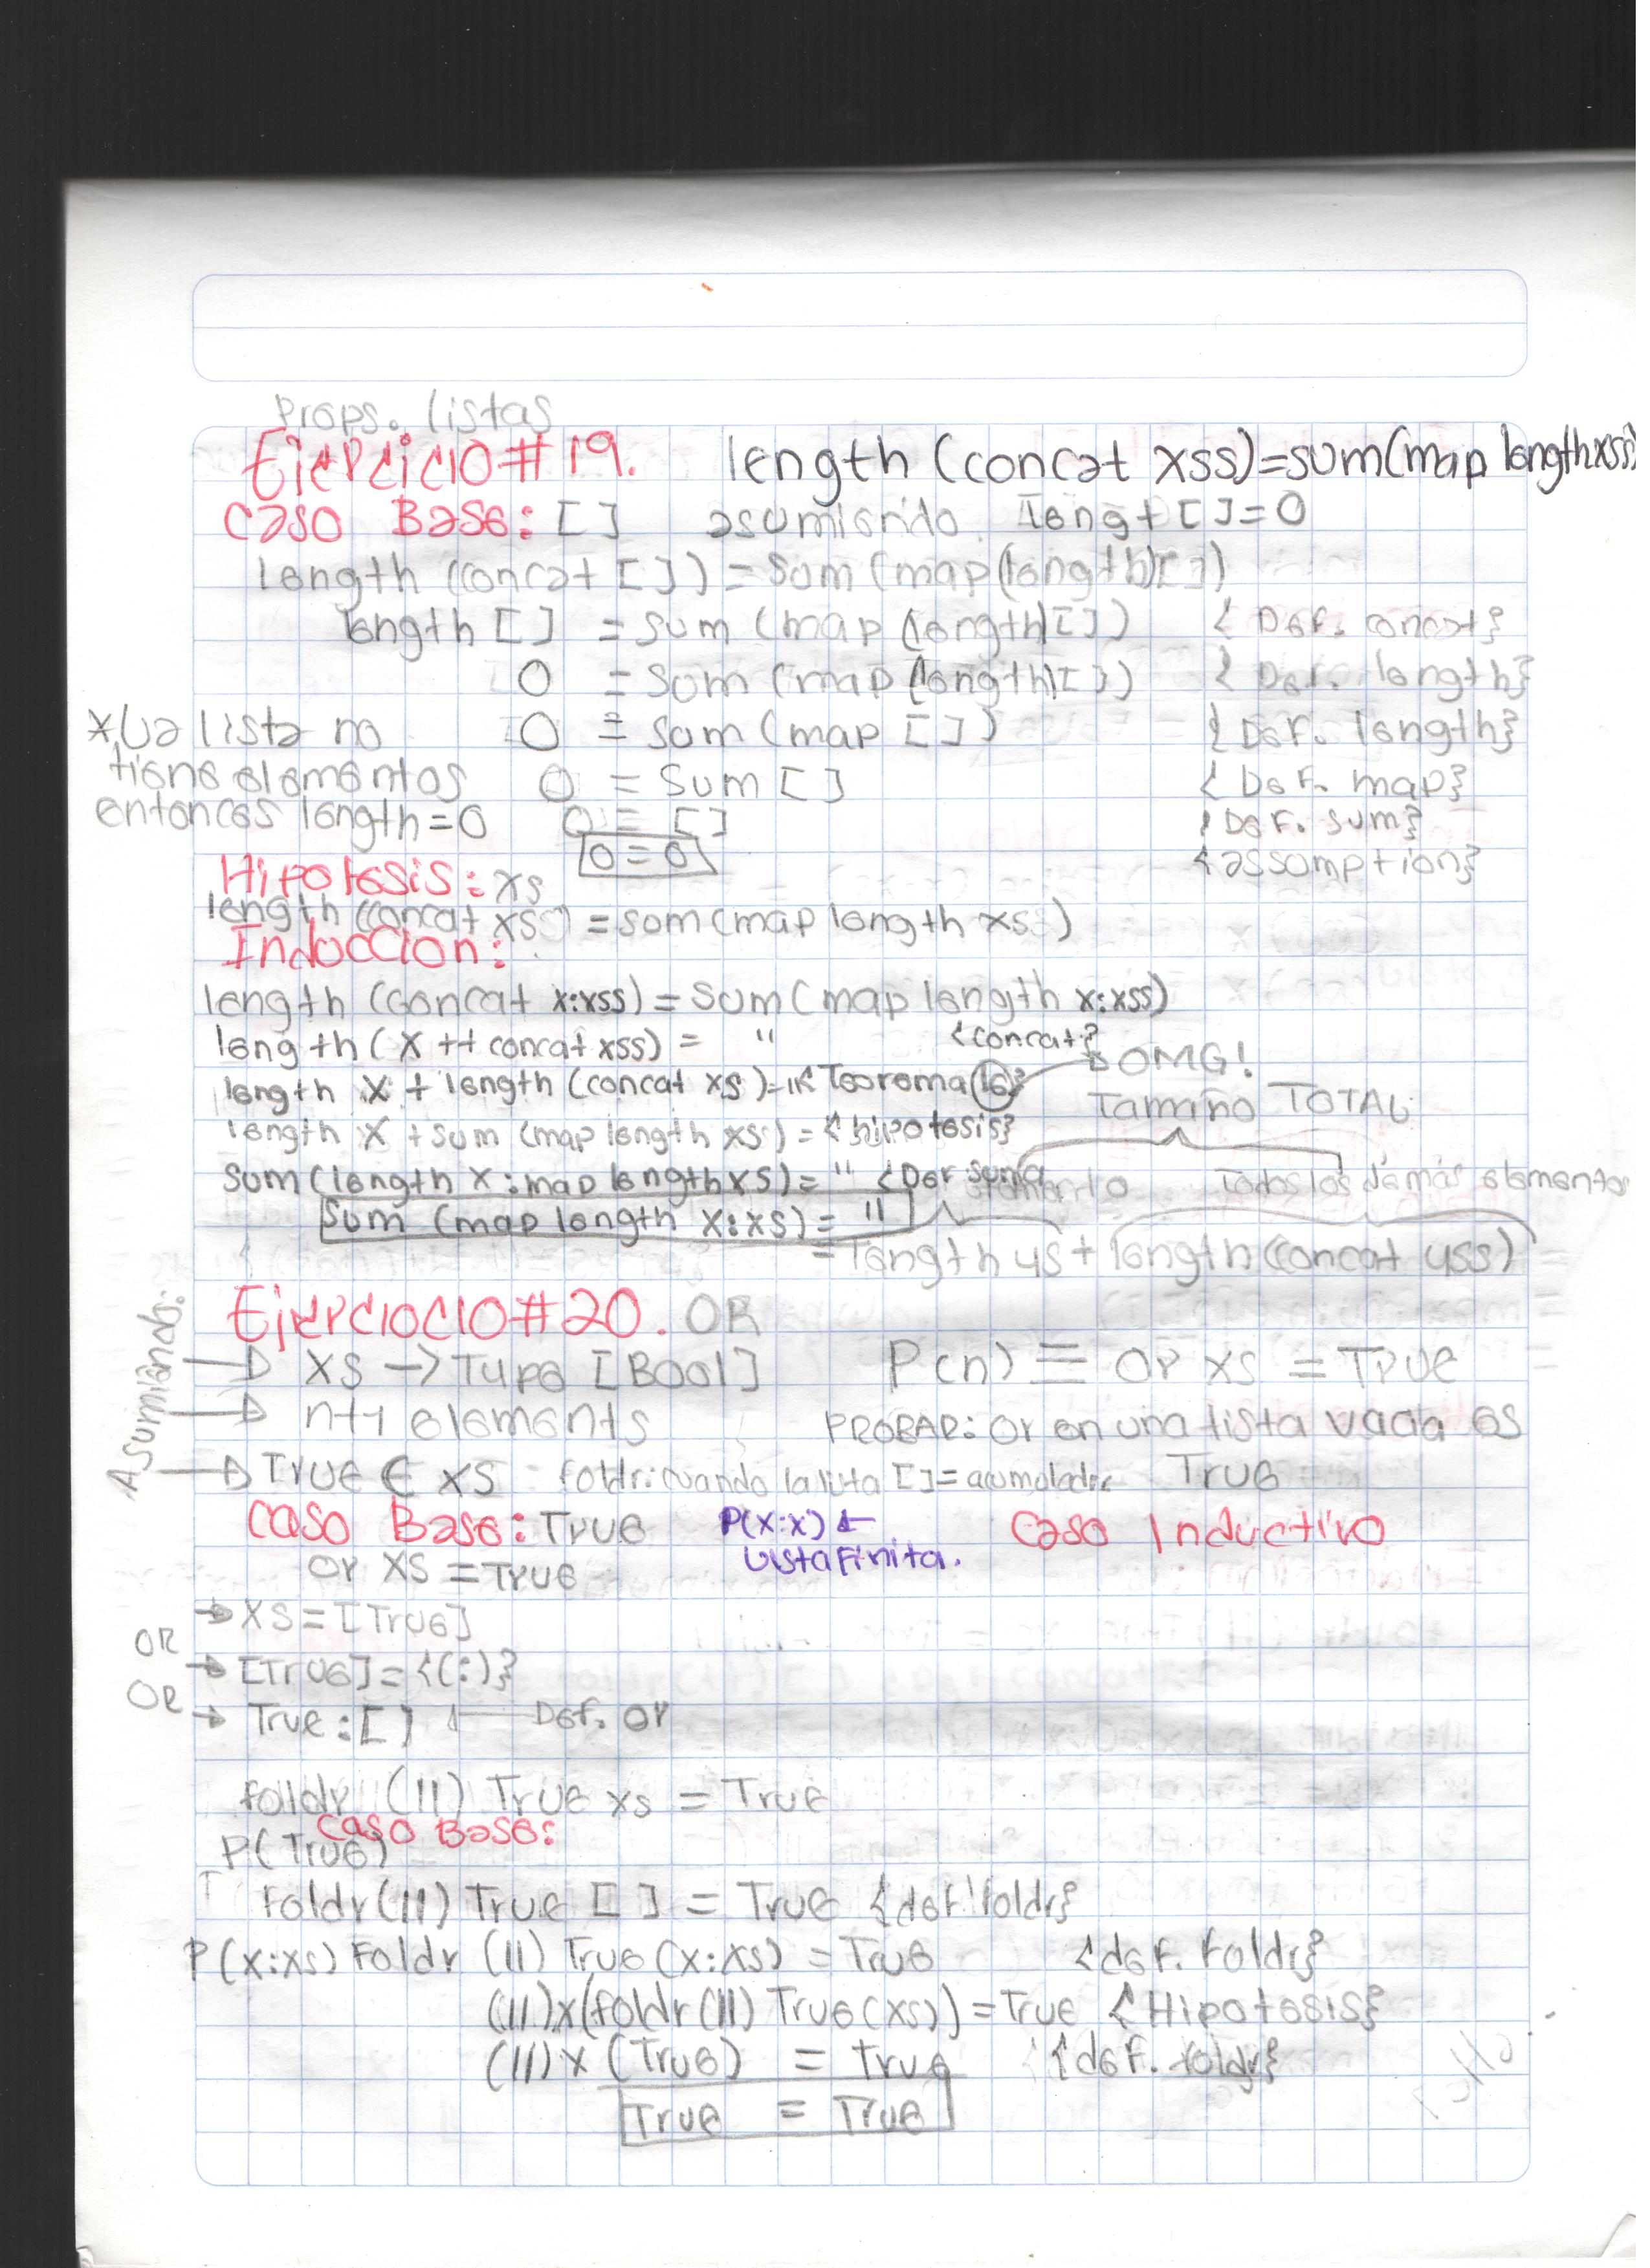 Props. listas
Ejercicio #19. length (concat xss)=sum(map length xss)
Caso Base: [] asumiendo lengt[]=0
length (concat []) = sum (map(length)[])
length [] = sum (map (length)[]) {Def. concat}
0 = sum (map (length)[]) {Def. length}
0 = sum (map []) {Def. length}
*La lista no
tiene elementos
entonces length=0
0 = sum [] {Def. map}
0 = [] {Def. sum}
0 = 0 {assumption}
Hipotesis: xs
length (concat xss) = sum (map length xss)
Induccion:
length (concat x:xss) = sum (map length x:xss)
length (x ++ concat xss) = " {concat}
length x + length (concat xs) = " {Teorema 16} OMG!
length x + sum (map length xs) = {hipotesis}
Tamaño TOTAL
sum (length x : map length xs) = " {Def suma
Todos los demás elementos
sum (map length x:xs) = "
= length ys + length (concat yss)
Ejerciocio #20. OR
Asumiendo:
xs -> Type [Bool] P(n) ≡ or xs = True
n+1 elements PROBAR: or en una lista vacia es
True ∈ xs foldr: cuando la lista []= acumulador True
Caso Base: True P(x:x) ← Caso Inductivo
Lista finita.
or xs = True
→ xs = [True]
OR → [True] = {(:)}
OR → True : [] Def. or
foldr (||) True xs = True
Caso Base:
P(True)
Foldr (||) True [] = True {def foldr}
P(x:xs) Foldr (||) True (x:xs) = True {def. foldr}
(||) x (foldr (||) True (xs)) = True {Hipotesis}
(||) x (True) = True {def. foldr}
True = True